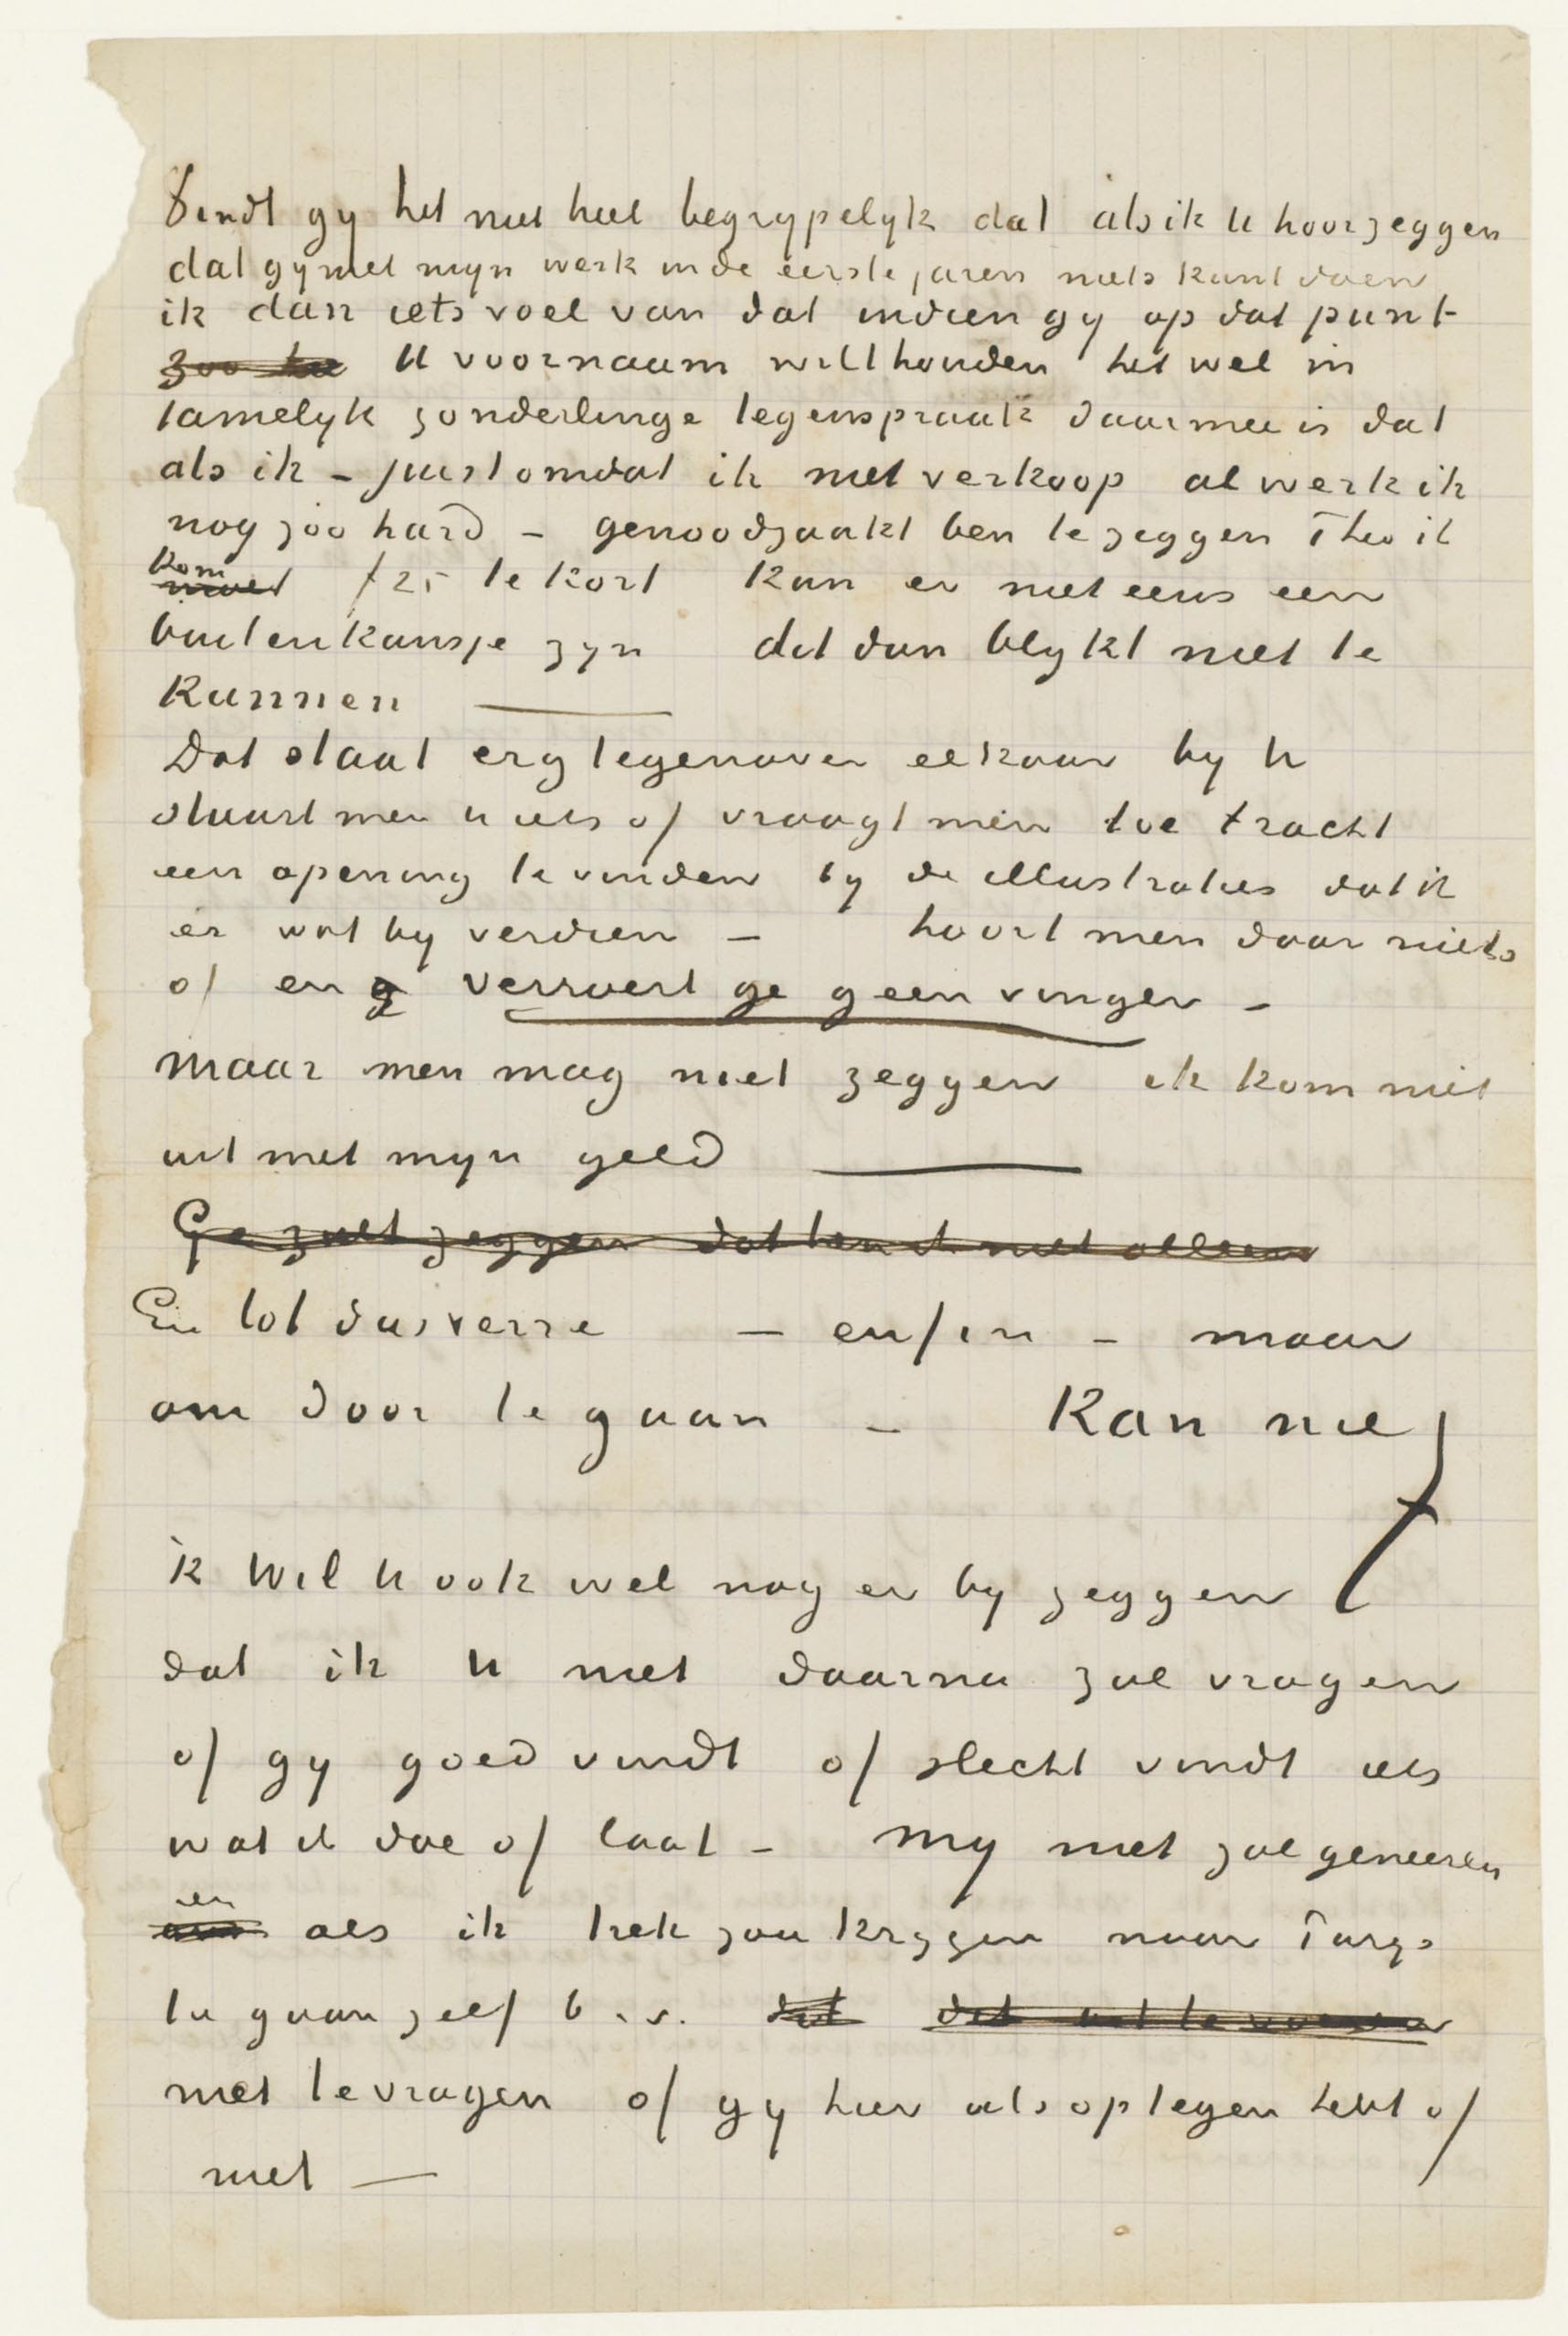 Vindt gij het niet heel begrijpelijk dat als ik U hoor zeggen
dat gij met mijn werk in de eerste jaren niets kunt doen
ik dan iets voel van dat indien gij op dat punt
zoo U voornaam wilt houden het wel in
tamelijk zonderlinge tegenspraak daarmee is dat
als ik – juist omdat ik niet verkoop al werk ik
nog zoo hard – genoodzaakt ben te zeggen Theo ik
kom moet f 25 te kort kan er niet eens een
buitenkansje zijn dit dan blijkt niet te
kunnen ——
Dat staat erg tegenover elkaar bij U
stuurt men U iets of vraagt men toe tracht
een opening te vinden bij de illustraties dat ik
er wat bij verdien – hoort men daar niets
of en g verroert ge geen vinger –
maar men mag niet zeggen ik kom niet
uit met mijn geld ——
Ge zult zeggen dat ben ik niet alleen
En tot dusverre – enfin – maar
om door te gaan – Kan niet
ik wil U ook wel nog er bij zeggen
dat ik U niet daarna zal vragen
of gij goed vindt of slecht vindt iets
wat ik doe of laat – mij niet zal geneeren
en als ik trek zou krijgen naar Parijs
te gaan zelf b.v. dit
niet te vragen of gij hier iets op tegen hebt of
niet —